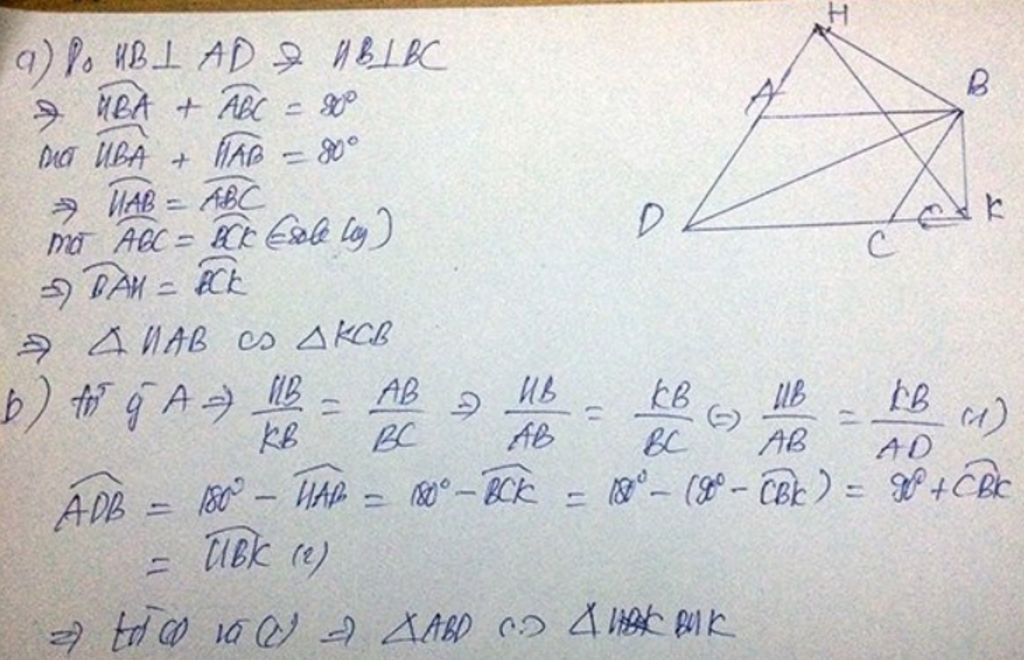 a) Do HB⊥ AD ⇒ HB⊥BC
⇒ HBA + ABC = 90°
mà HBA + HAB = 90°
⇒ HAB = ABC
mà ABC = BCK (sole log)
⇒ BAH = BCK
⇒ △HAB ∽ △KCB
b) từ ý A ⇒ HB/KB = AB/BC ⇒ HB/AB = KB/BC ⇔ HB/AB = KB/AD (1)
ADB = 180° - HAB = 180° - BCK = 180° - (90° - CBK) = 90° + CBK
= HBK (2)
⇒ từ (1) và (2) ⇒ △ABD ∽ △BHK
H
A
B
D
C
K